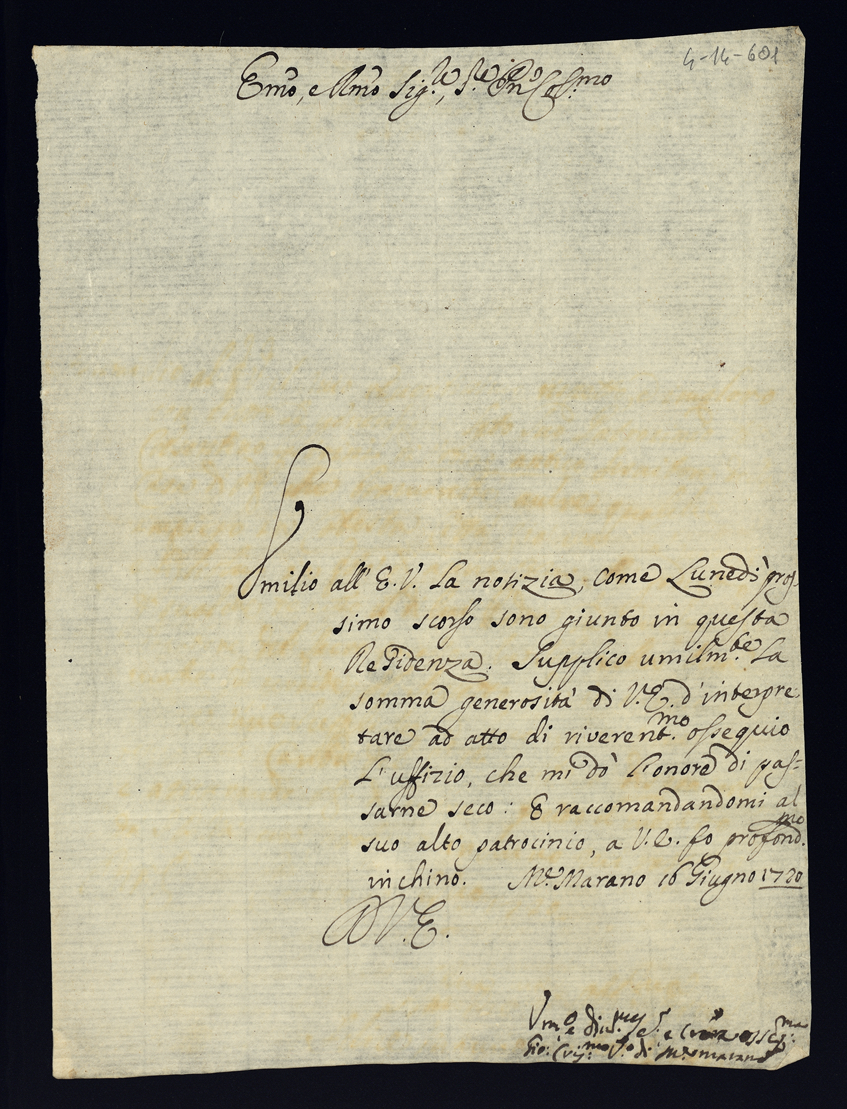 4-14-601
Emo, e Rmo Sig.re, S.re Pn̄ Col.mo
Umilio all' E.V. La notizia, come Lunedì pros-
simo scorso sono giunto in questa
Residenza. Supplico umilm.te La
somma generosità di V.E. d'interpre
tare ad atto di riverent.mo ossequio
L'uffizio, che mi dò L'onore di pas-
sarne seco: E raccomandandomi al
suo alto patrocinio, a V.E. fo profond.mo
inchino. M.e Marano 16 Giugno 1720
D V.E.
Vmo e di
Gio: